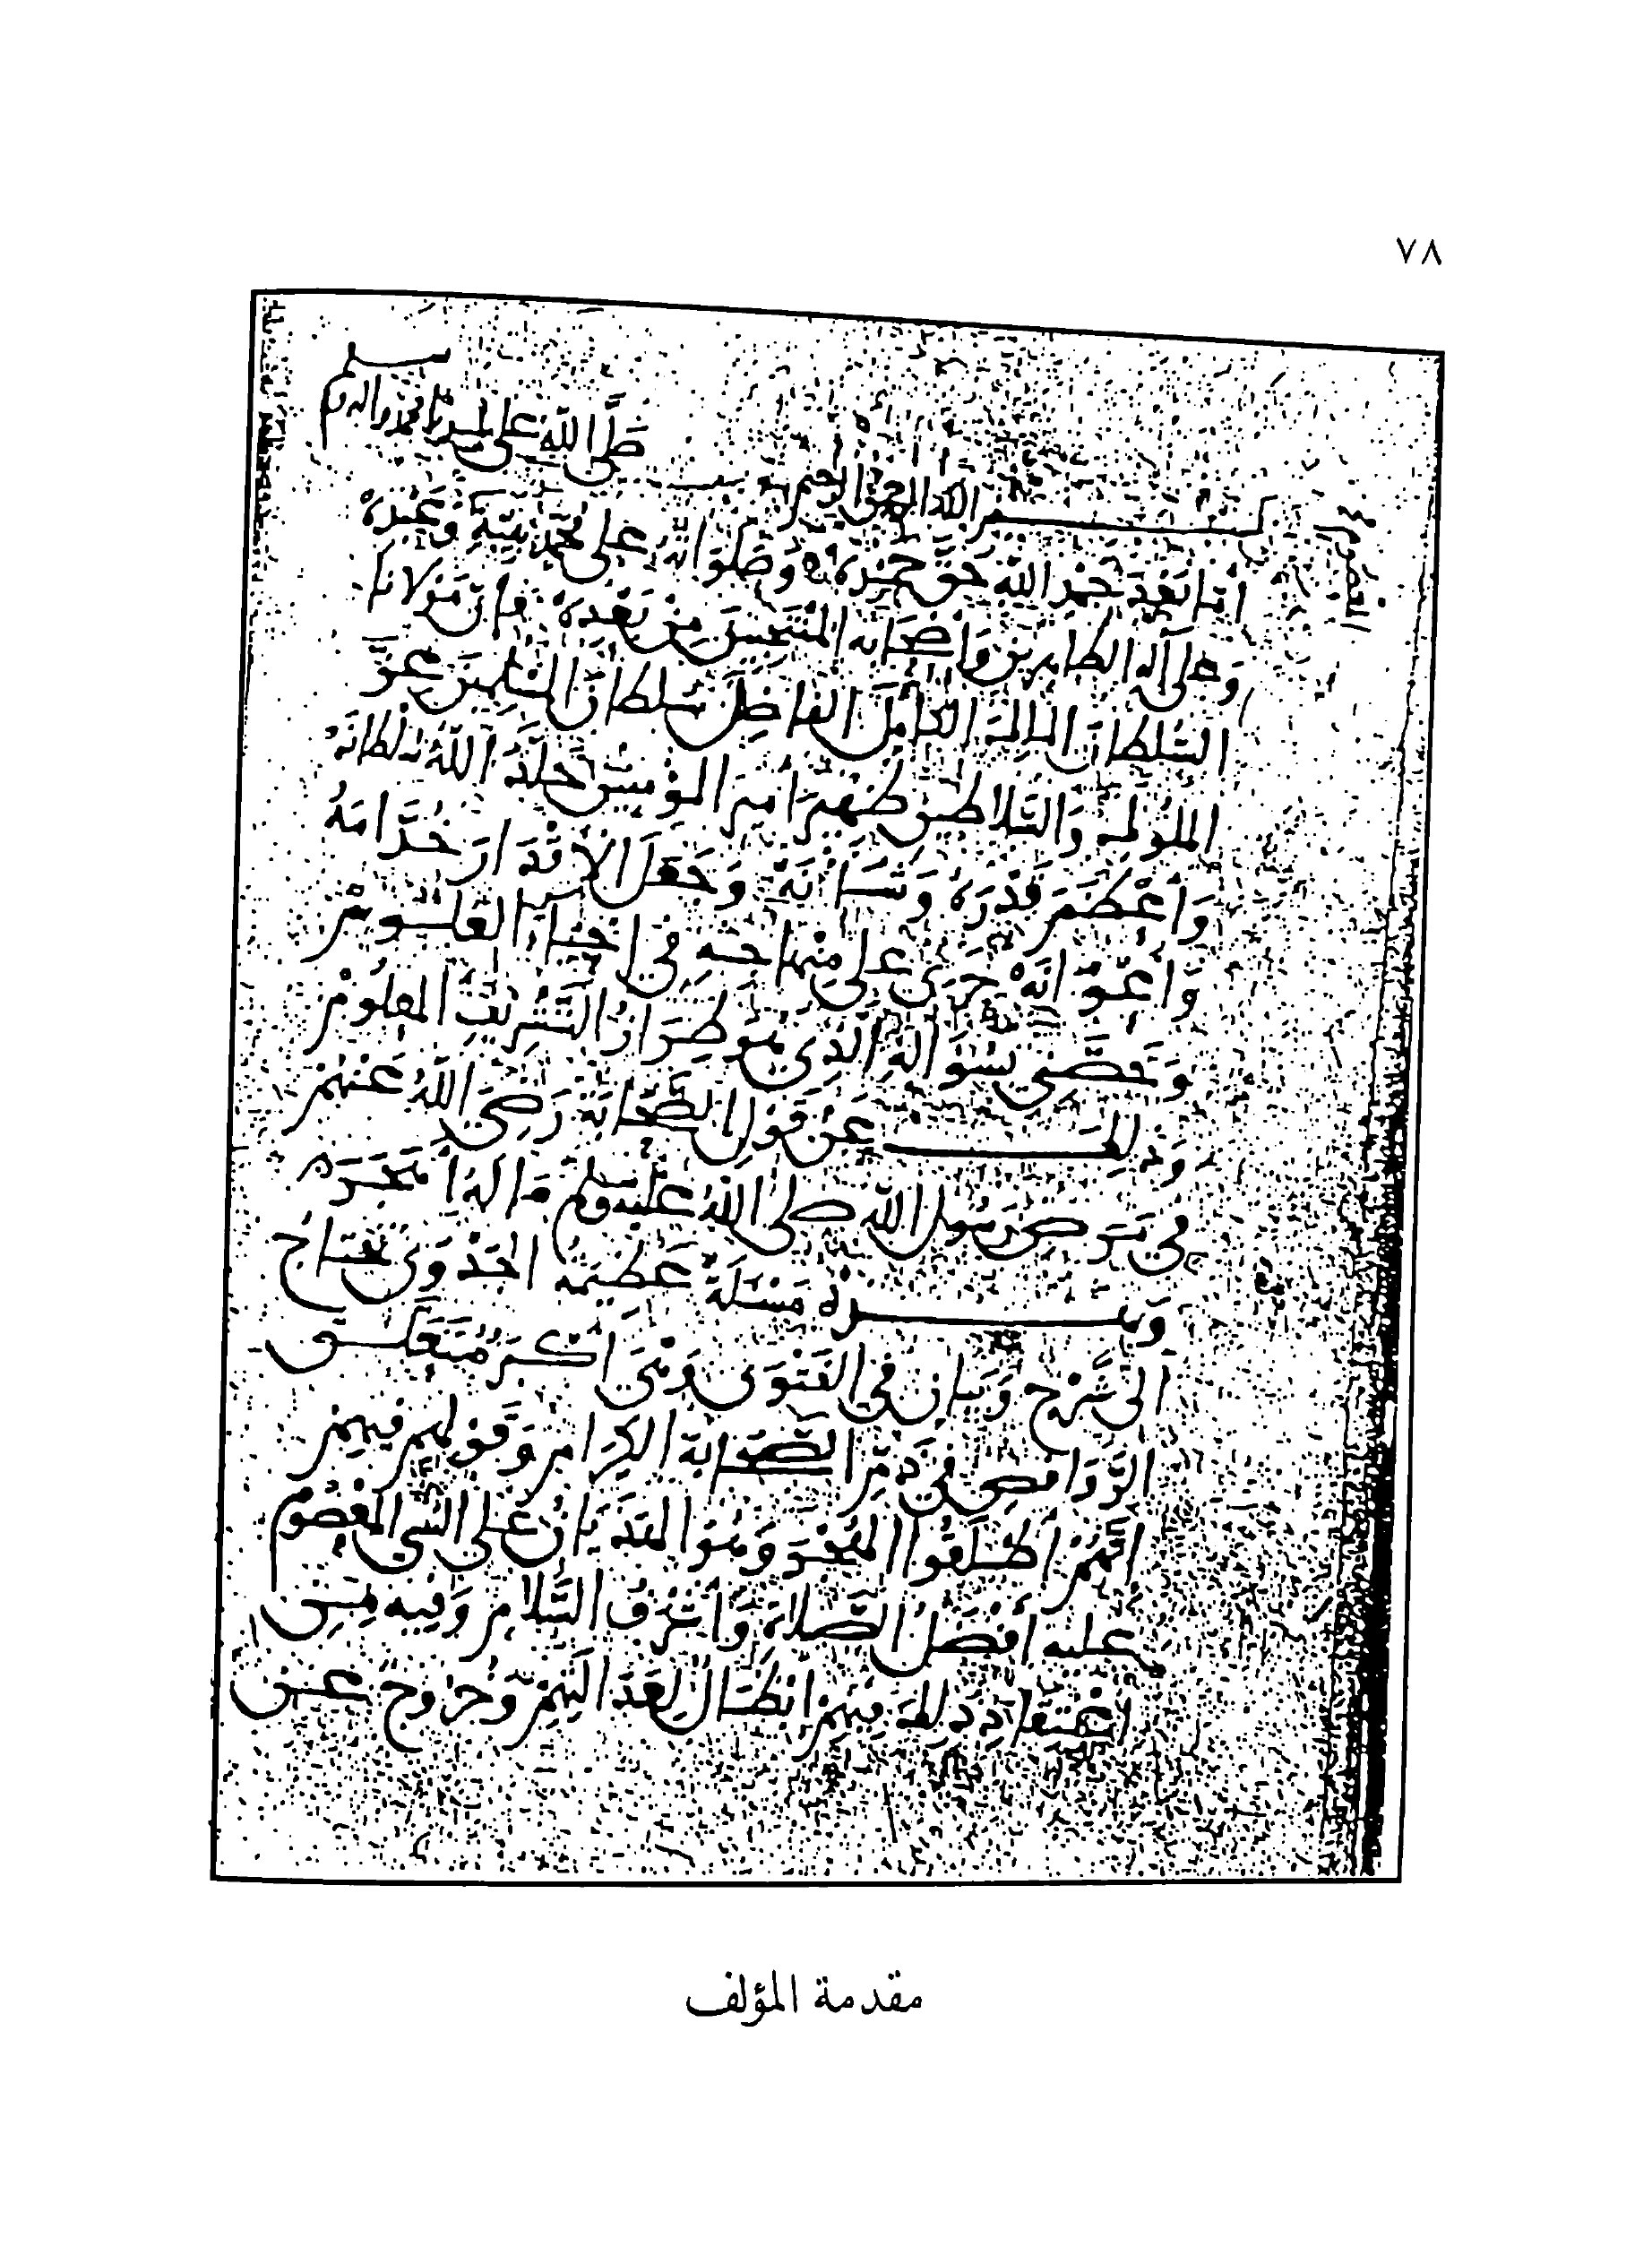 ٧٨
صلى الله على سيدنا محمد وآله وسلم
بسم الله الرحمن الرحيم
أما بعد حمد الله حق حمده وصلواته على محمد نبيه وعبده
وعلى آله الطاهرين وأصحابه المنتخبين من بعده فإن مولانا
السلطان المالك العامل الفاضل سلطان المسلمين عز
الملوك والسلاطين ظهير أمير المؤمنين خلد الله سلطانه
وأعظم قدره وشانه وجعل الاقتدار خدامه
وأعوانه جرى على منهاجه في إحياء العلوم
وخصني بسؤاله الذي هو طراز الشريف المعلوم
وذلك عن قول الصحابة رضي الله عنهم
في مرض رسول الله صلى الله عليه وسلم ماله أهجر
وهذه مسئلة عظيمة الجدوى تحتاج
إلى شرح وبيان في الفتوى وهي أكبر متعلق
الروافض في ذم الصحابة الكرام وقولهم فيهم
أنهم أطلقوا الهجر وهو الهذيان على النبي المعصوم
عليه أفضل الصلاة وأشرف السلام وفيه من
اعتقاد ذلك فيهم إبطال لعدالتهم وخروج عن
مقدمة المؤلف